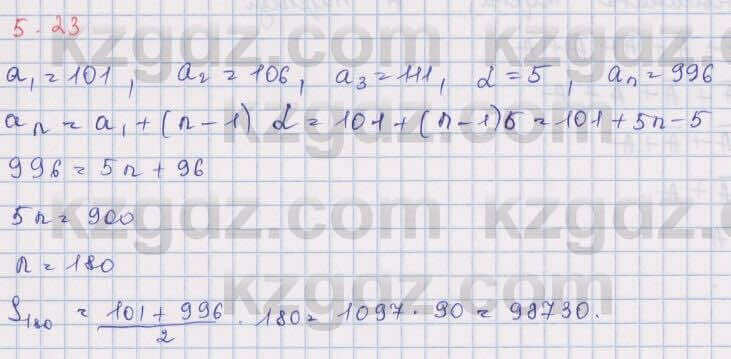 5.23
a₁ = 101, a₂ = 106, a₃ = 111, d = 5, aₙ = 996
aₙ = a₁ + (n-1) d = 101 + (n-1)5 = 101 + 5n - 5
996 = 5n + 96
5n = 900
n = 180
S₁₈₀ = (101 + 996)/2 · 180 = 1097 · 90 = 98730.
kzgdz.com
kzgdz.com
kzgdz.com
kzgdz.com